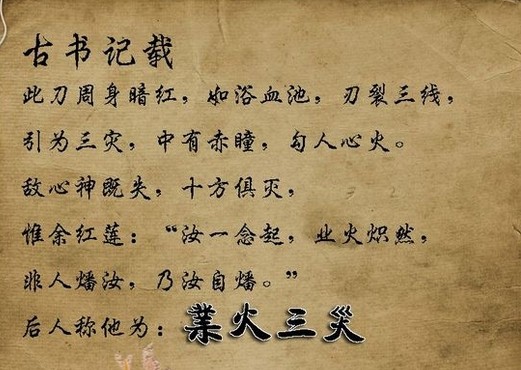 古书记载
此刀周身暗红，如浴血池，刃裂三线，
引为三灾，中有赤瞳，勾人心火。
敌心神既失，十方俱灭，
惟余红莲：“汝一念起，业火炽然，
非人燔汝，乃汝自燔。”
后人称他为：業火三災